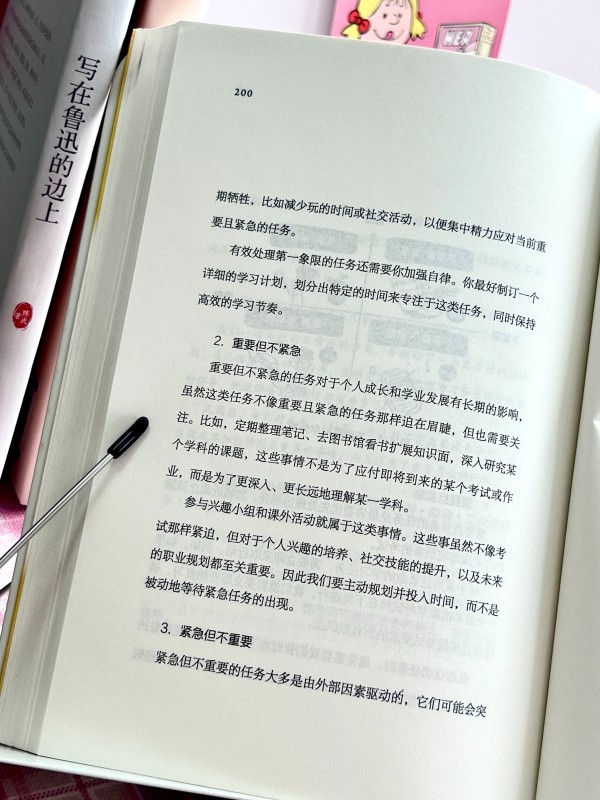 写在鲁迅的边上
200
期牺牲，比如减少玩的时间或社交活动，以便集中精力应对当前重
要且紧急的任务。
有效处理第一象限的任务还需要你加强自律。你最好制订一个
详细的学习计划，划分出特定的时间来专注于这类任务，同时保持
高效的学习节奏。
2. 重要但不紧急
重要但不紧急的任务对于个人成长和学业发展有长期的影响，
虽然这类任务不像重要且紧急的任务那样迫在眉睫，但也需要关
注。比如，定期整理笔记、去图书馆看书扩展知识面，深入研究某
个学科的课题，这些事情不是为了应付即将到来的某个考试或作
业，而是为了更深入、更长远地理解某一学科。
参与兴趣小组和课外活动就属于这类事情。这些事虽然不像考
试那样紧迫，但对于个人兴趣的培养、社交技能的提升，以及未来
的职业规划都至关重要。因此我们要主动规划并投入时间，而不是
被动地等待紧急任务的出现。
3. 紧急但不重要
紧急但不重要的任务大多是由外部因素驱动的，它们可能会突